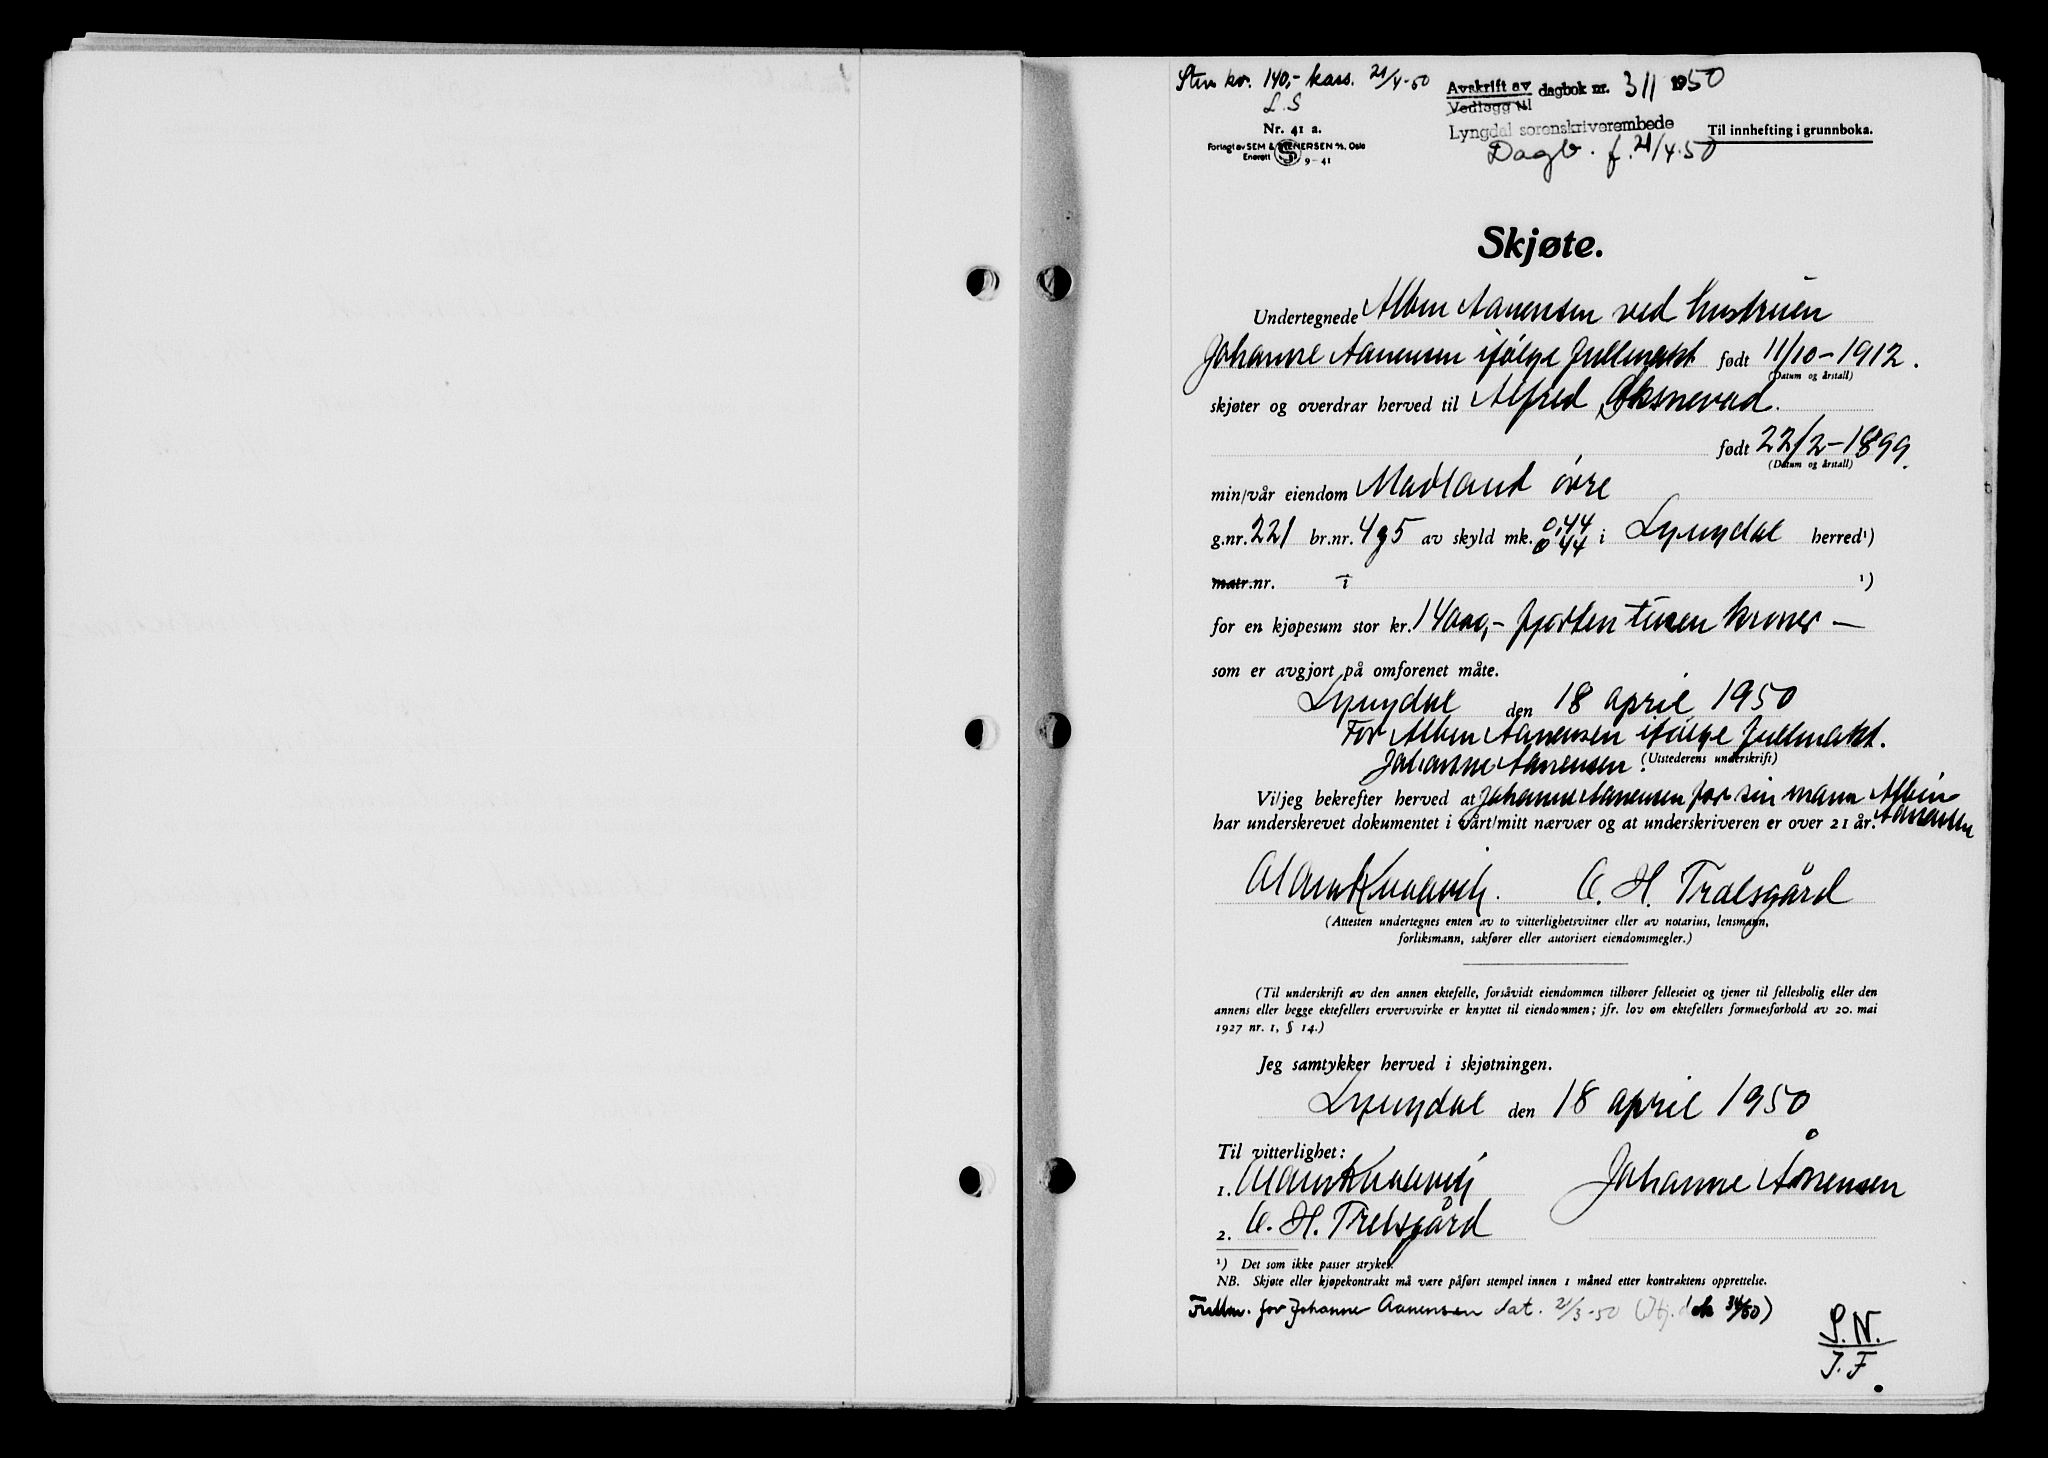 Stem kr. 140,- kass. 21/4-50
L.S
Avskrift av dagbok nr. 311 1950
Vedlegg til
Lyngdal sorenskriverembede
Nr. 41 a.
Til innhefting i grunnboka.
Forlagt av SEM & STENERSEN A/S, Oslo
Enerett 9-41
Dagb. f. 21/4-50
Skjøte.
Undertegnede Albin Aanensen ved hustruen
Johanne Aanensen ifølge fullmakt født 11/10-1912.
(Datum og årstall)
skjøter og overdrar herved til Alfred Øksnevad.
født 22/2-1899.
(Datum og årstall)
min/vår eiendom Madland øvre
g.nr. 221 br.nr. 4 g 5 av skyld mk. 0,44 0,44 i Lyngdal herred¹)
matr.nr. i ¹)
for en kjøpesum stor kr. 14000,- fjorten tusen kroner —
som er avgjort på omforenet måte.
Lyngdal den 18 april 1950
For Albin Aanensen ifølge fullmakt.
Johanne Aanensen. (Utstederens underskrift)
Vi/jeg bekrefter herved at Johanne Aanensen for sin mann Albin
Aanensen
har underskrevet dokumentet i vårt/mitt nærvær og at underskriveren er over 21 år.
O. H. Trælsgård
(Attesten undertegnes enten av to vitterlighetsvitner eller av notarius, lensmann,
forliksmann, sakfører eller autorisert eiendomsmegler.)
(Til underskrift av den annen ektefelle, forsåvidt eiendommen tilhører felleseiet og tjener til fellesbolig eller den
annens eller begge ektefellers ervervsvirke er knyttet til eiendommen; jfr. lov om ektefellers formuesforhold av 20. mai
1927 nr. 1, § 14.)
Jeg samtykker herved i skjøtningen.
Lyngdal den 18 april 1950
Til vitterlighet:
1.
Johanne Ånensen
2. O. H. Trelsgård
¹) Det som ikke passer strykes.
NB. Skjøte eller kjøpekontrakt må være påført stempel innen 1 måned etter kontraktens opprettelse.
Fullm. for Johanne Aanensen dat. 21/3-50
S.N.
J.F.